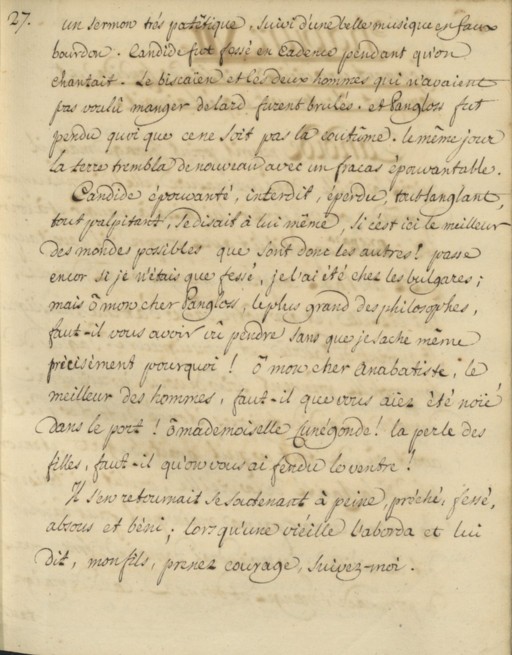 27.
un sermon trés patêtique, suivi d'une belle musique en faux
bourdon. Candide fut fessé en cadence pendant qu'on
chantait. Le biscaïen et les deux hommes qui n'avaient
pas voulû manger de lard furent brulés. et Pangloss fut
pendu quoi que ce ne soit pas la coutume. le même jour
la terre trembla de nouveau avec un fracas épouvantable.
Candide épouvanté, interdit, éperdu, tout sanglant,
tout palpitant, se disait à lui même, si c'est ici le meilleur
des mondes possibles que sont donc les autres! passe
encor si je n'étais que fessé, je l'ai été chez les bulgares;
mais ô mon cher Pangloss, le plus grand des philosophes,
faut-il vous avoir vû pendre sans que je sache même
précisément pourquoi! ô mon cher Anabatiste, le
meilleur des hommes, faut-il que vous aiez été noié
dans le port! ô mademoiselle Cunégonde! la perle des
filles, faut-il qu'on vous ai fendu le ventre!
Il s'en retournait se soutenant à peine, prêché, fessé,
absous et béni; lorsqu'une vieille l'aborda et lui
dit, mon fils, prenez courage, suivez-moi.